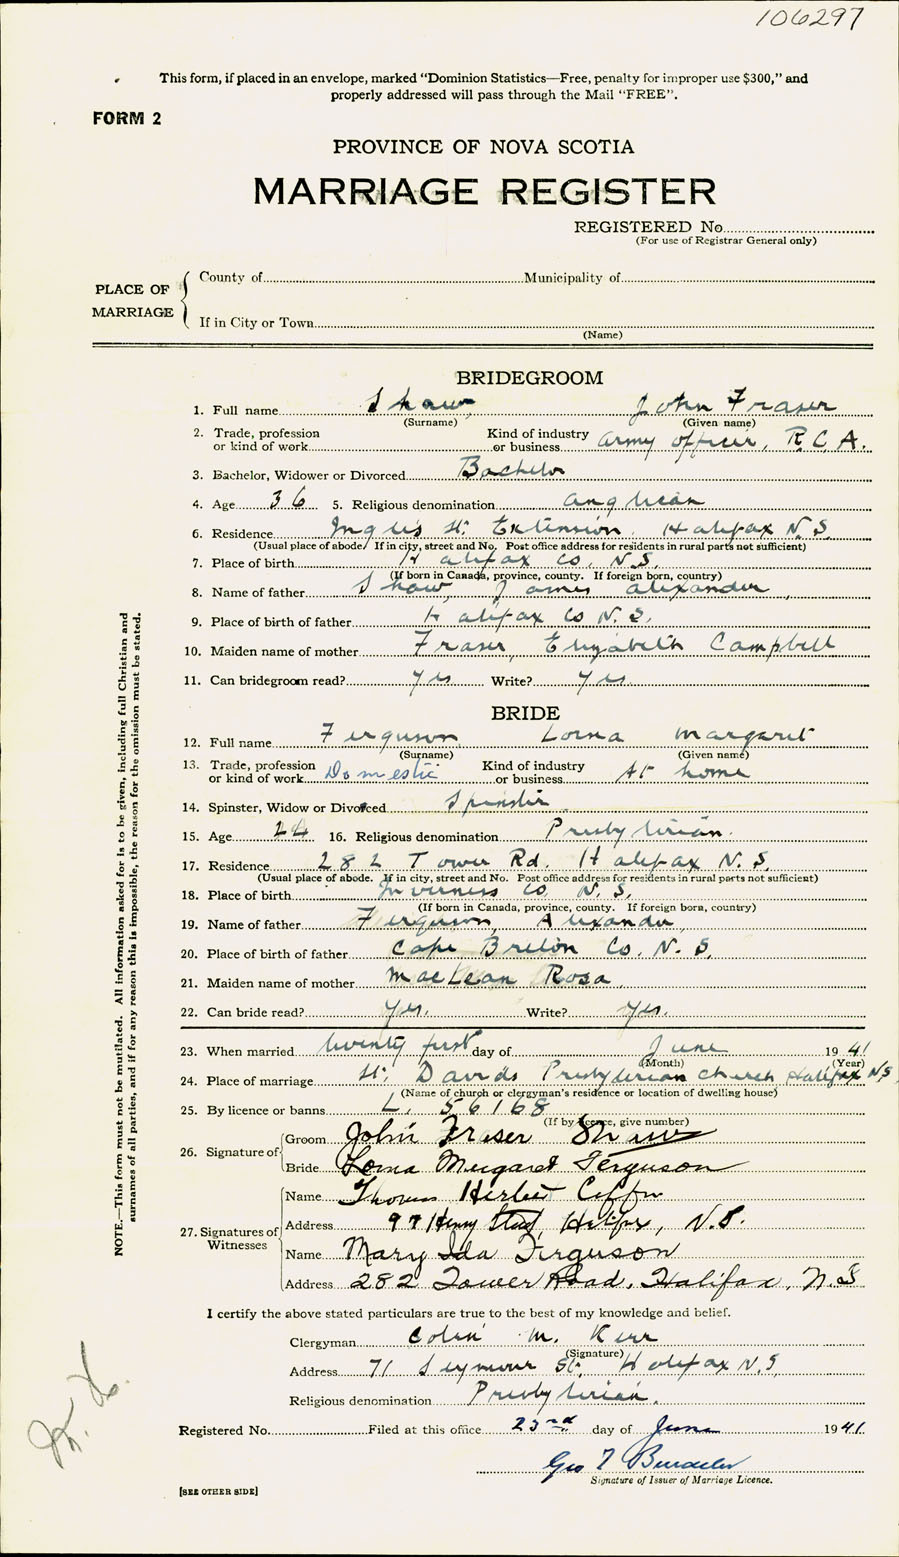 106297
This form, if placed in an envelope, marked "Dominion Statistics—Free, penalty for improper use $300," and
properly addressed will pass through the Mail "FREE".
FORM 2
PROVINCE OF NOVA SCOTIA
MARRIAGE REGISTER
REGISTERED No.
(For use of Registrar General only)
PLACE OF MARRIAGE
County of Municipality of
If in City or Town
(Name)
BRIDEGROOM
1. Full name Shaw, John Fraser
(Surname) (Given name)
2. Trade, profession or kind of work Kind of industry or business army officer, R.C.A.
3. Bachelor, Widower or Divorced Bachelor
4. Age 36 5. Religious denomination anglican
6. Residence Inglis St. Extension, Halifax N.S.
(Usual place of abode. If in city, street and No. Post office address for residents in rural parts not sufficient)
7. Place of birth Halifax Co. N.S.
(If born in Canada, province, county. If foreign born, country)
8. Name of father Shaw, James alexander
9. Place of birth of father Halifax Co N.S.
10. Maiden name of mother Fraser, Elizabeth Campbell
11. Can bridegroom read? yes Write? yes
BRIDE
12. Full name Ferguson, Lorna margaret
(Surname) (Given name)
13. Trade, profession or kind of work Domestic Kind of industry or business At home
14. Spinster, Widow or Divorced Spinster
15. Age 24 16. Religious denomination Presbyterian.
17. Residence 282 Tower Rd. Halifax N.S.
(Usual place of abode. If in city, street and No. Post office address for residents in rural parts not sufficient)
18. Place of birth Inverness Co. N.S.
(If born in Canada, province, county. If foreign born, country)
19. Name of father Ferguson, Alexander
20. Place of birth of father Cape Breton Co. N.S.
21. Maiden name of mother MacLean Rosa
22. Can bride read? yes. Write? yes.
23. When married twenty first day of June 1941
(Month) (Year)
24. Place of marriage St. Davids Presbyterian church Halifax N.S.
(Name of church or clergyman's residence or location of dwelling house)
25. By licence or banns L. 56168
(If by licence, give number)
26. Signature of Groom John Fraser Shaw
Bride Lorna Margaret Ferguson
27. Signatures of Witnesses
Name Thomas Herbert Coffin
Address 97 Henry Street, Halifax, N.S.
Name Mary Ida Ferguson
Address 282 Tower Road, Halifax, N.S
I certify the above stated particulars are true to the best of my knowledge and belief.
Clergyman Colin M. Kerr
(Signature)
Address 71 Seymour St. Halifax N.S
Religious denomination Presbyterian.
Registered No. Filed at this office 23rd day of June 1941
Geo
Signature of Issuer of Marriage Licence.
[SEE OTHER SIDE]
NOTE.—This form must not be mutilated. All information asked for is to be given, including full Christian and
surnames of all parties, and if for any reason this is impossible, the reason for the omission must be stated.